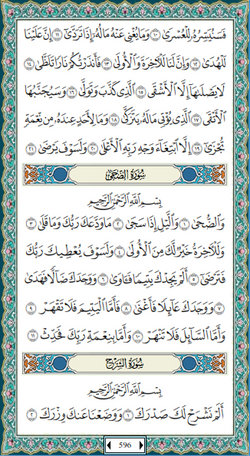 فَسَنُيَسِّرُهُۥ لِلْعُسْرَىٰ ١٠ وَمَا يُغْنِى عَنْهُ مَالُهُۥٓ إِذَا تَرَدَّىٰٓ ١١ إِنَّ عَلَيْنَا
لَلْهُدَىٰ ١٢ وَإِنَّ لَنَا لَلْـَٔاخِرَةَ وَٱلْأُولَىٰ ١٣ فَأَنذَرْتُكُمْ نَارًا تَلَظَّىٰ ١٤
لَا يَصْلَىٰهَآ إِلَّا ٱلْأَشْقَى ١٥ ٱلَّذِى كَذَّبَ وَتَوَلَّىٰ ١٦ وَسَيُجَنَّبُهَا
ٱلْأَتْقَى ١٧ ٱلَّذِى يُؤْتِى مَالَهُۥ يَتَزَكَّىٰ ١٨ وَمَا لِأَحَدٍ عِندَهُۥ مِن نِّعْمَةٍ
تُجْزَىٰٓ ١٩ إِلَّا ٱبْتِغَآءَ وَجْهِ رَبِّهِ ٱلْأَعْلَىٰ ٢٠ وَلَسَوْفَ يَرْضَىٰ ٢١
سُورَةُ الضُّحَىٰ
بِسْمِ ٱللَّهِ ٱلرَّحْمَٰنِ ٱلرَّحِيمِ
وَٱلضُّحَىٰ ١ وَٱلَّيْلِ إِذَا سَجَىٰ ٢ مَا وَدَّعَكَ رَبُّكَ وَمَا قَلَىٰ ٣
وَلَلْـَٔاخِرَةُ خَيْرٌ لَّكَ مِنَ ٱلْأُولَىٰ ٤ وَلَسَوْفَ يُعْطِيكَ رَبُّكَ
فَتَرْضَىٰٓ ٥ أَلَمْ يَجِدْكَ يَتِيمًا فَـَٔاوَىٰ ٦ وَوَجَدَكَ ضَآلًّا فَهَدَىٰ
٧ وَوَجَدَكَ عَآئِلًا فَأَغْنَىٰ ٨ فَأَمَّا ٱلْيَتِيمَ فَلَا تَقْهَرْ ٩
وَأَمَّا ٱلسَّآئِلَ فَلَا تَنْهَرْ ١٠ وَأَمَّا بِنِعْمَةِ رَبِّكَ فَحَدِّثْ ١١
سُورَةُ الشَّرْحِ
بِسْمِ ٱللَّهِ ٱلرَّحْمَٰنِ ٱلرَّحِيمِ
أَلَمْ نَشْرَحْ لَكَ صَدْرَكَ ١ وَوَضَعْنَا عَنكَ وِزْرَكَ ٢
596